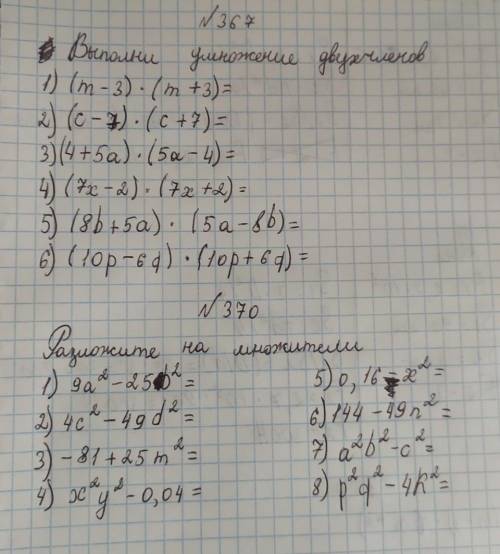 №367
Выполни умножение двухчленов
1) (m-3)·(m+3)=
2) (c-7)·(c+7)=
3) (4+5a)·(5a-4)=
4) (7x-2)·(7x+2)=
5) (8b+5a)·(5a-8b)=
6) (10p-6q)·(10p+6q)=
№370
Разложите на множители
1) 9a²-25b²=
2) 4c²-49d²=
3) -81+25m²=
4) x²y²-0,04=
5) 0,16-x²=
6) 144-49n²=
7) a²b²-c²=
8) p²q²-4k²=